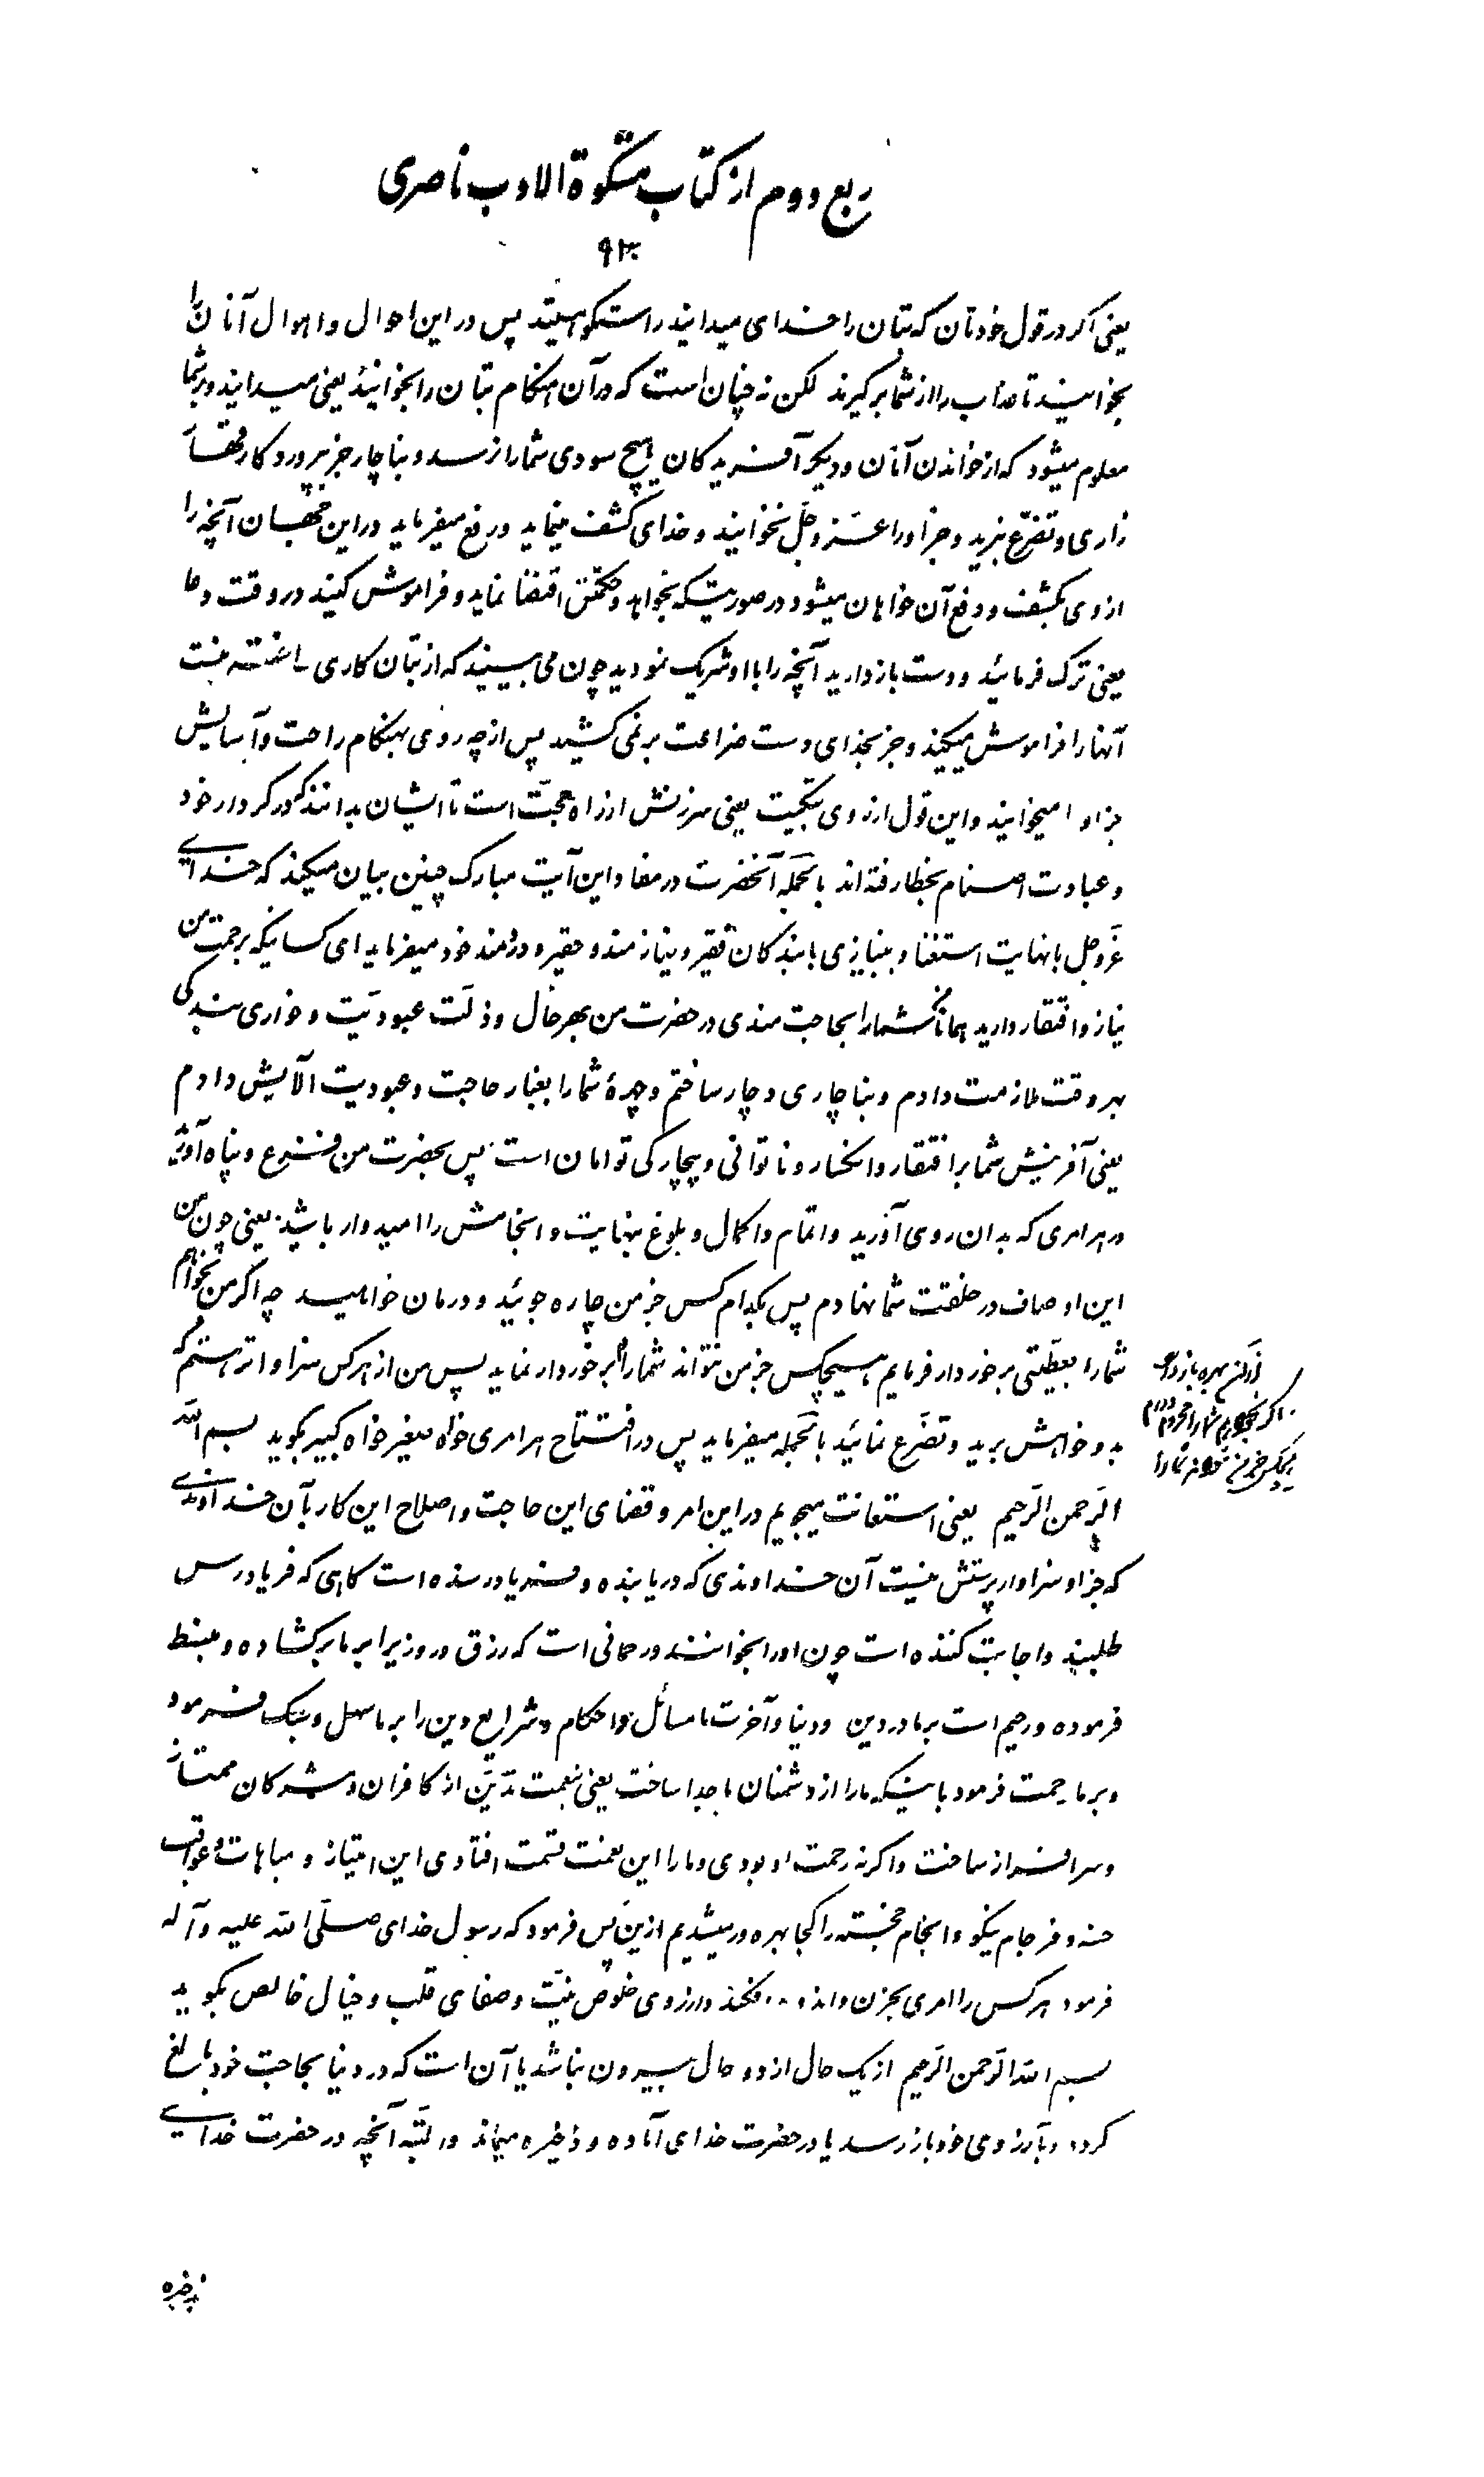 ربع دوم از کتاب مشکوة الادب ناصری
یعنی اکر در قول خودتان که بتان را خدای میدانید راستکو هستید پس در این احوال و اهوال آنان را
بخوانید تا عذاب را از شما برکیرند لکن نه چنان است که در آن هنکام بتان را بخوانید یعنی میدانید و بر شما
معلوم میشود که از خواندن آنان و دیکر آفریدکان هیچ سودی شما را نرسد و بناچار جز بپروردکار قهار
زاری و تضرع نبرید و جز او را عز و جل نخوانید و خدای کشف مینماید و رفع میفرماید در این جهان آنچه را
از وی بکشف و رفع آن خواهان میشود در صورتیکه بخواهد و حکمتش اقتضا نماید و فراموش کنید در وقت دعا
یعنی ترک فرمائید و دست باز دارید آنچه را با او شریک نمودید چون می بینید که از بتان کاری ساخته نیست
آنها را فراموش میکنید و جز بخدای دست ضراعت بر نمی کشید پس از چه روی بهنکام راحت و آسایش
جز او را میخوانید و این قول از روی تبکیت یعنی سرزنش از راه حجت است تا ایشان بدانند که در کردار خود
و عبادت اصنام بخطا رفته اند بالجمله آنحضرت در مفاد این آیت مبارک چنین بیان میکند که خدای
عز و جل با نهایت استغنا و بینیازی با بندکان فقیر و نیازمند و حقیر و دردمند خود میفرماید ای کسانیکه برحمت من
نیاز و افتقار دارید همانا شما را بحاجت مندی در حضرت من بهر حال و ذلت عبودیت و خواری بندکی
بهر وقت ملازمت دادم و بناچاری دچار ساختم و چهرهٔ شما را بغبار حاجت و عبودیت آلایش دادم
یعنی آفرینش شما بر افتقار و انکسار و ناتوانی و بیچارکی توامان است پس بحضرت من فزع و پناه آورید
در هر امری که بدان روی آورید و اتمام و اکمال و بلوغ بنهایت و انجامش را امیدوار باشید یعنی چون من
این اوصاف در خلقت شما نهادم پس بکدام کس جز من چاره جوئید و درمان خواهید چه اکر من بخواهم
شما را بعطیتی برخوردار فرمایم هیچکس جز من نتواند شما را برخوردار نماید پس من از هر کس سزاوارتر هستم که
از آن بهره باز دارد
و اکر نخواهم شما را محروم دارم
هیچکس جز من نتواند شما را
بدو خواهش برید و تضرع نمائید بالجمله میفرماید پس در افتتاح هر امری خواه صغیر خواه کبیر بکوید بسم الله
الرحمن الرحیم یعنی استعانت میجویم در این امر و قضای این حاجت و اصلاح این کار بآن خداوندی
که جز او سزاوار پرستش نیست آن خداوندی که دریابنده و فریاد رسنده است کاهی که فریادرس
طلبند و اجابت کننده است چون او را بخوانند و رحمانی است که رزق و روزی را بر ما برکشاده و مبسط
فرموده و رحیم است بر ما در دین و دنیا و آخرت ما مسائل و احکام و شرایع دین را بر ما سهل و سبک فرمود
و بر ما رحمت فرمود باینکه ما را از دشمنان ما جدا ساخت یعنی بنعمت تدین از کافران و مشرکان ممتاز
و سرافراز ساخت و اکر نه رحمت او بودی و ما را این نعمت قسمت افتادی این امتیاز و مباهات و عواقب
حسنه و فرجام نیکو و انجام خجسته را کجا بهره ور میشدیم ازین پس فرمود که رسول خدای صلی الله علیه و آله
فرمود هر کس را امری بحزن و اندوه فکند و از روی خلوص نیت و صفای قلب و خیال خالص بکوید
بسم الله الرحمن الرحیم از یک حال از دو حال بیرون نباشد یا آن است که در دنیا بحاجت خود بالغ
کردد و بآرزوی خود باز رسد یا در حضرت خدای آماده و ذخیره میماند و البته آنچه در حضرت خدای
ذخیره